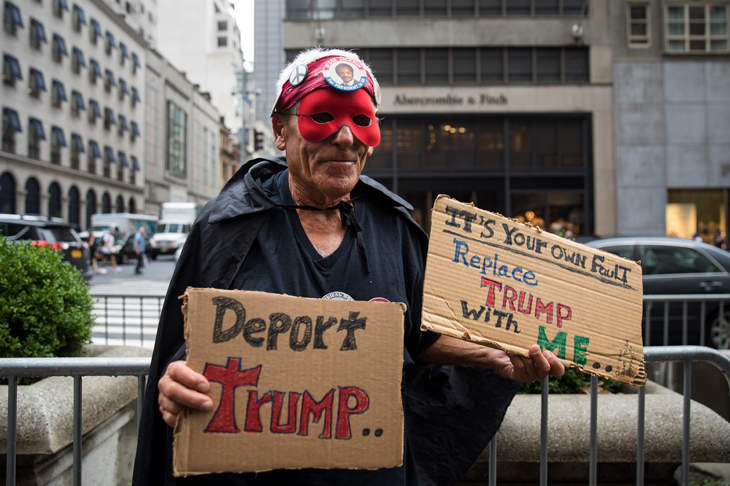 Abercrombie & Fitch
Deport
Trump..
It's Your Own Fault
Replace
TRUMP
with ME...